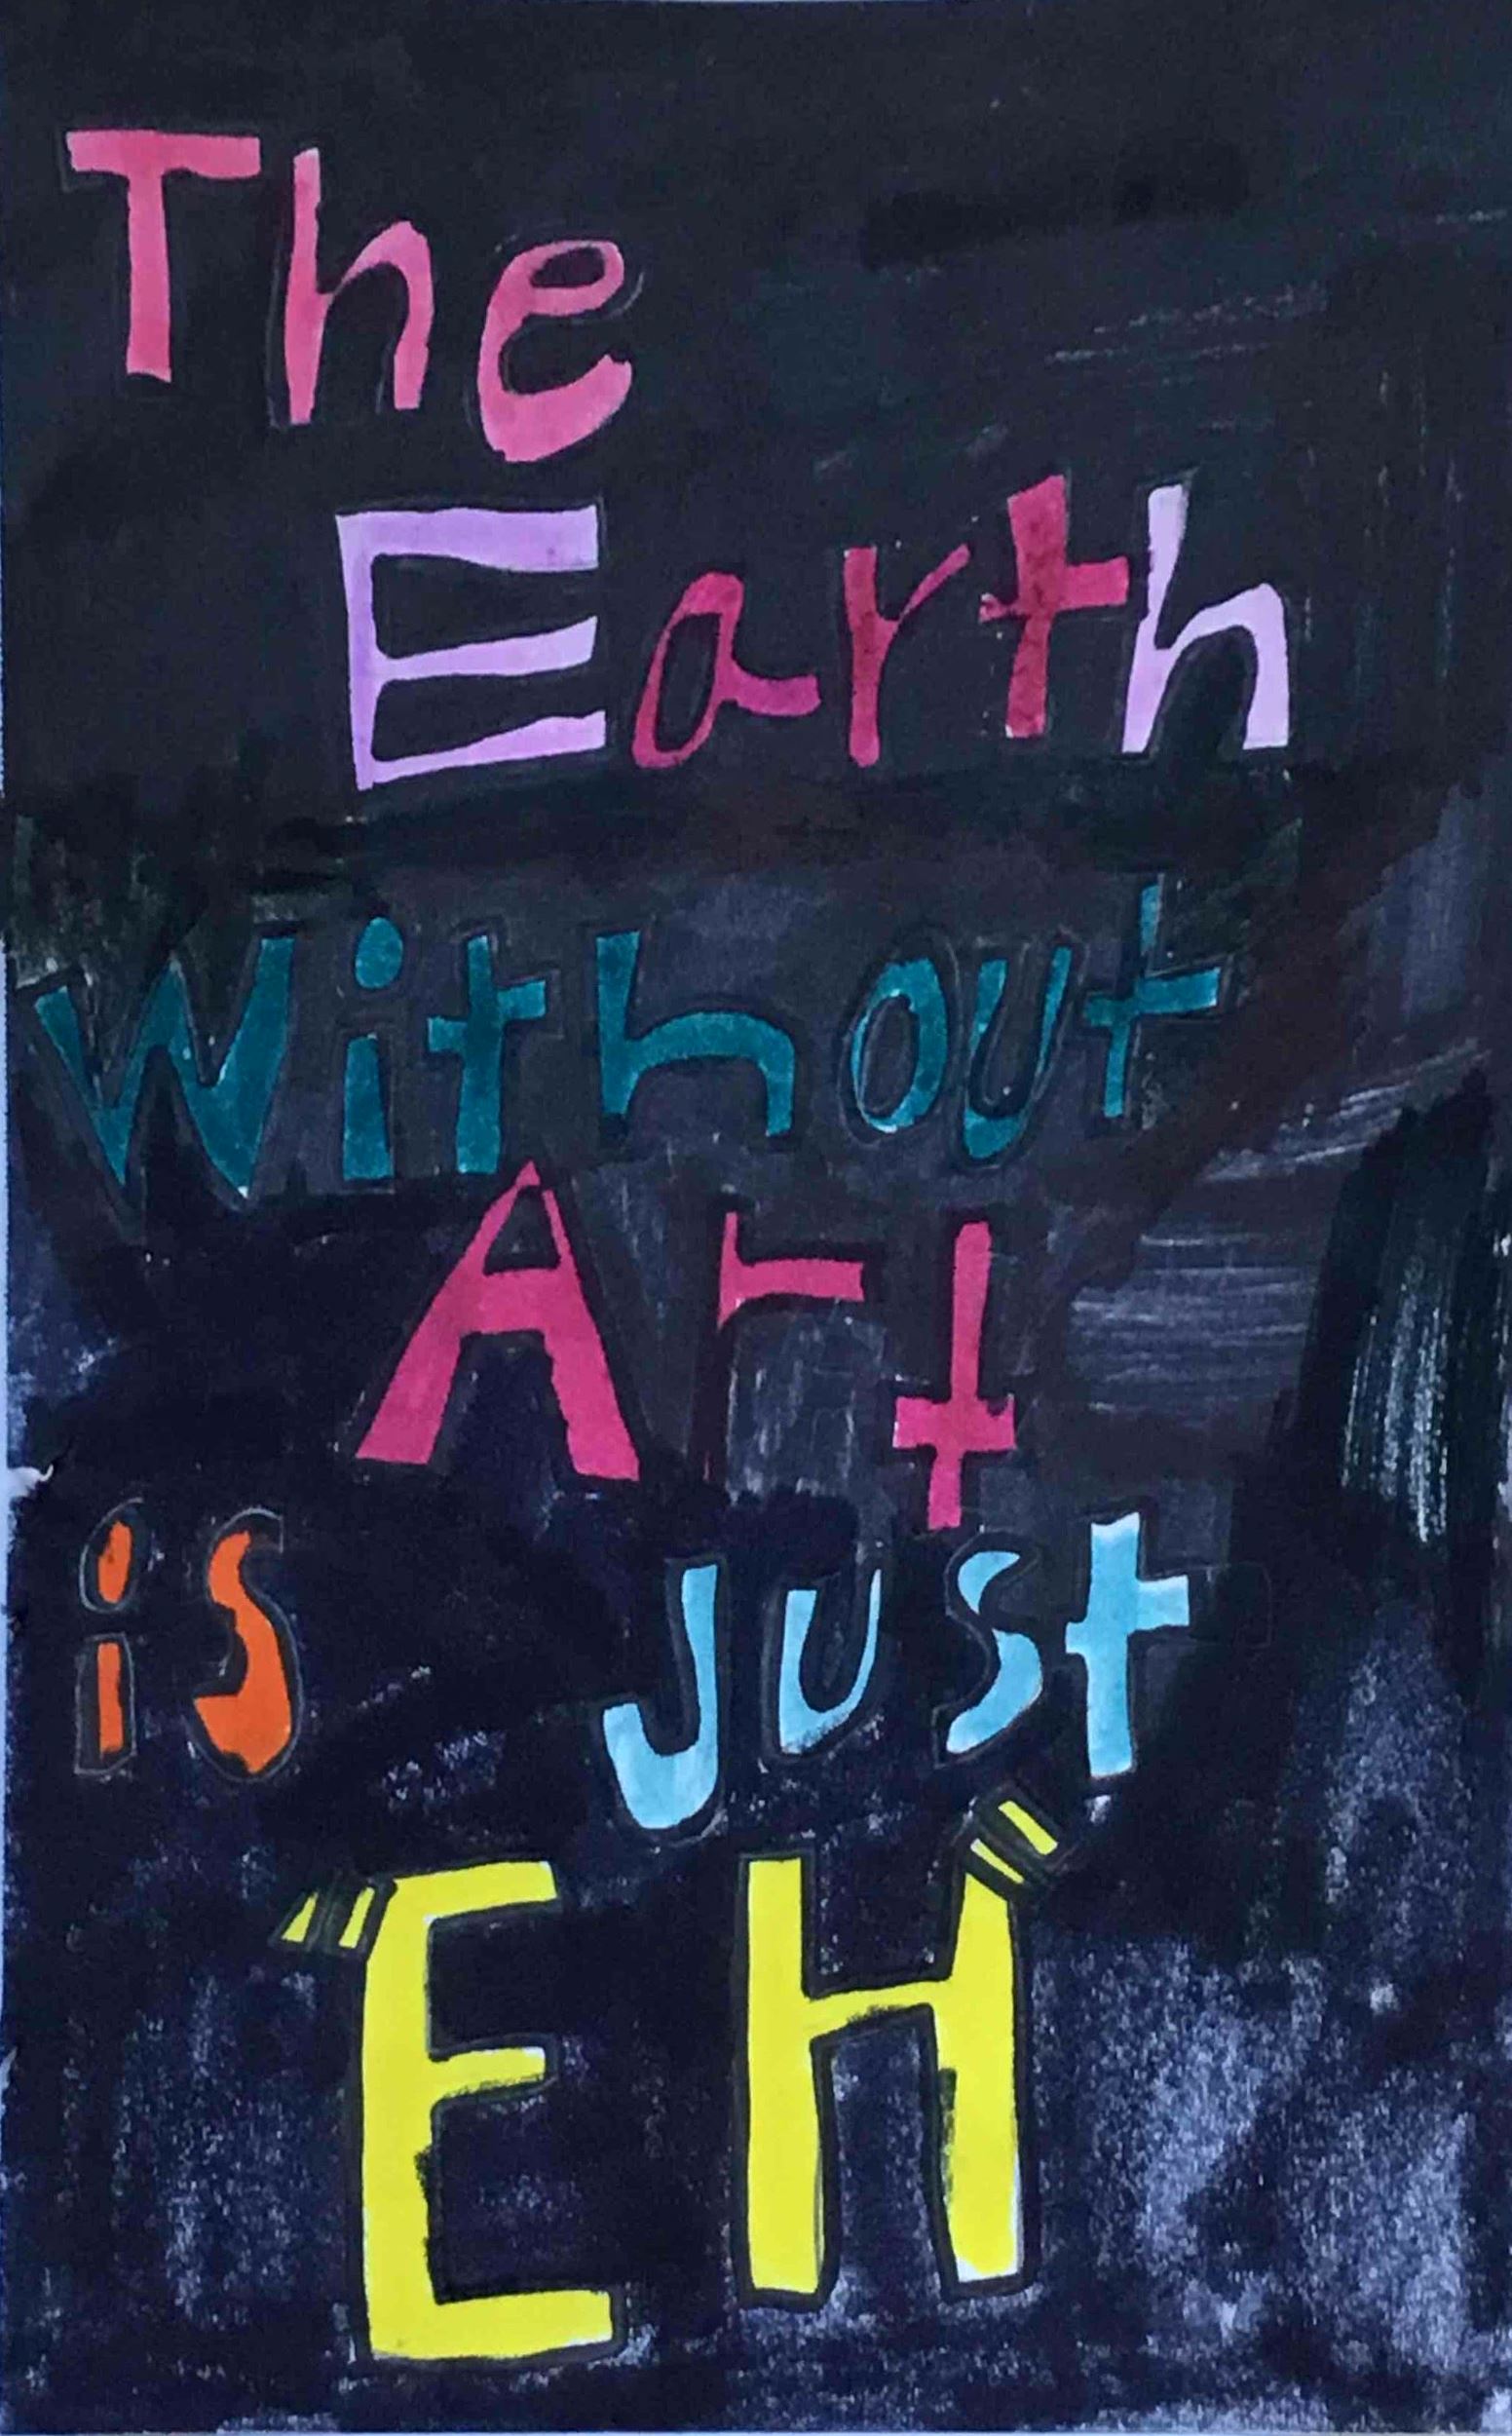 The
Earth
Without
Art
is just
"EH"